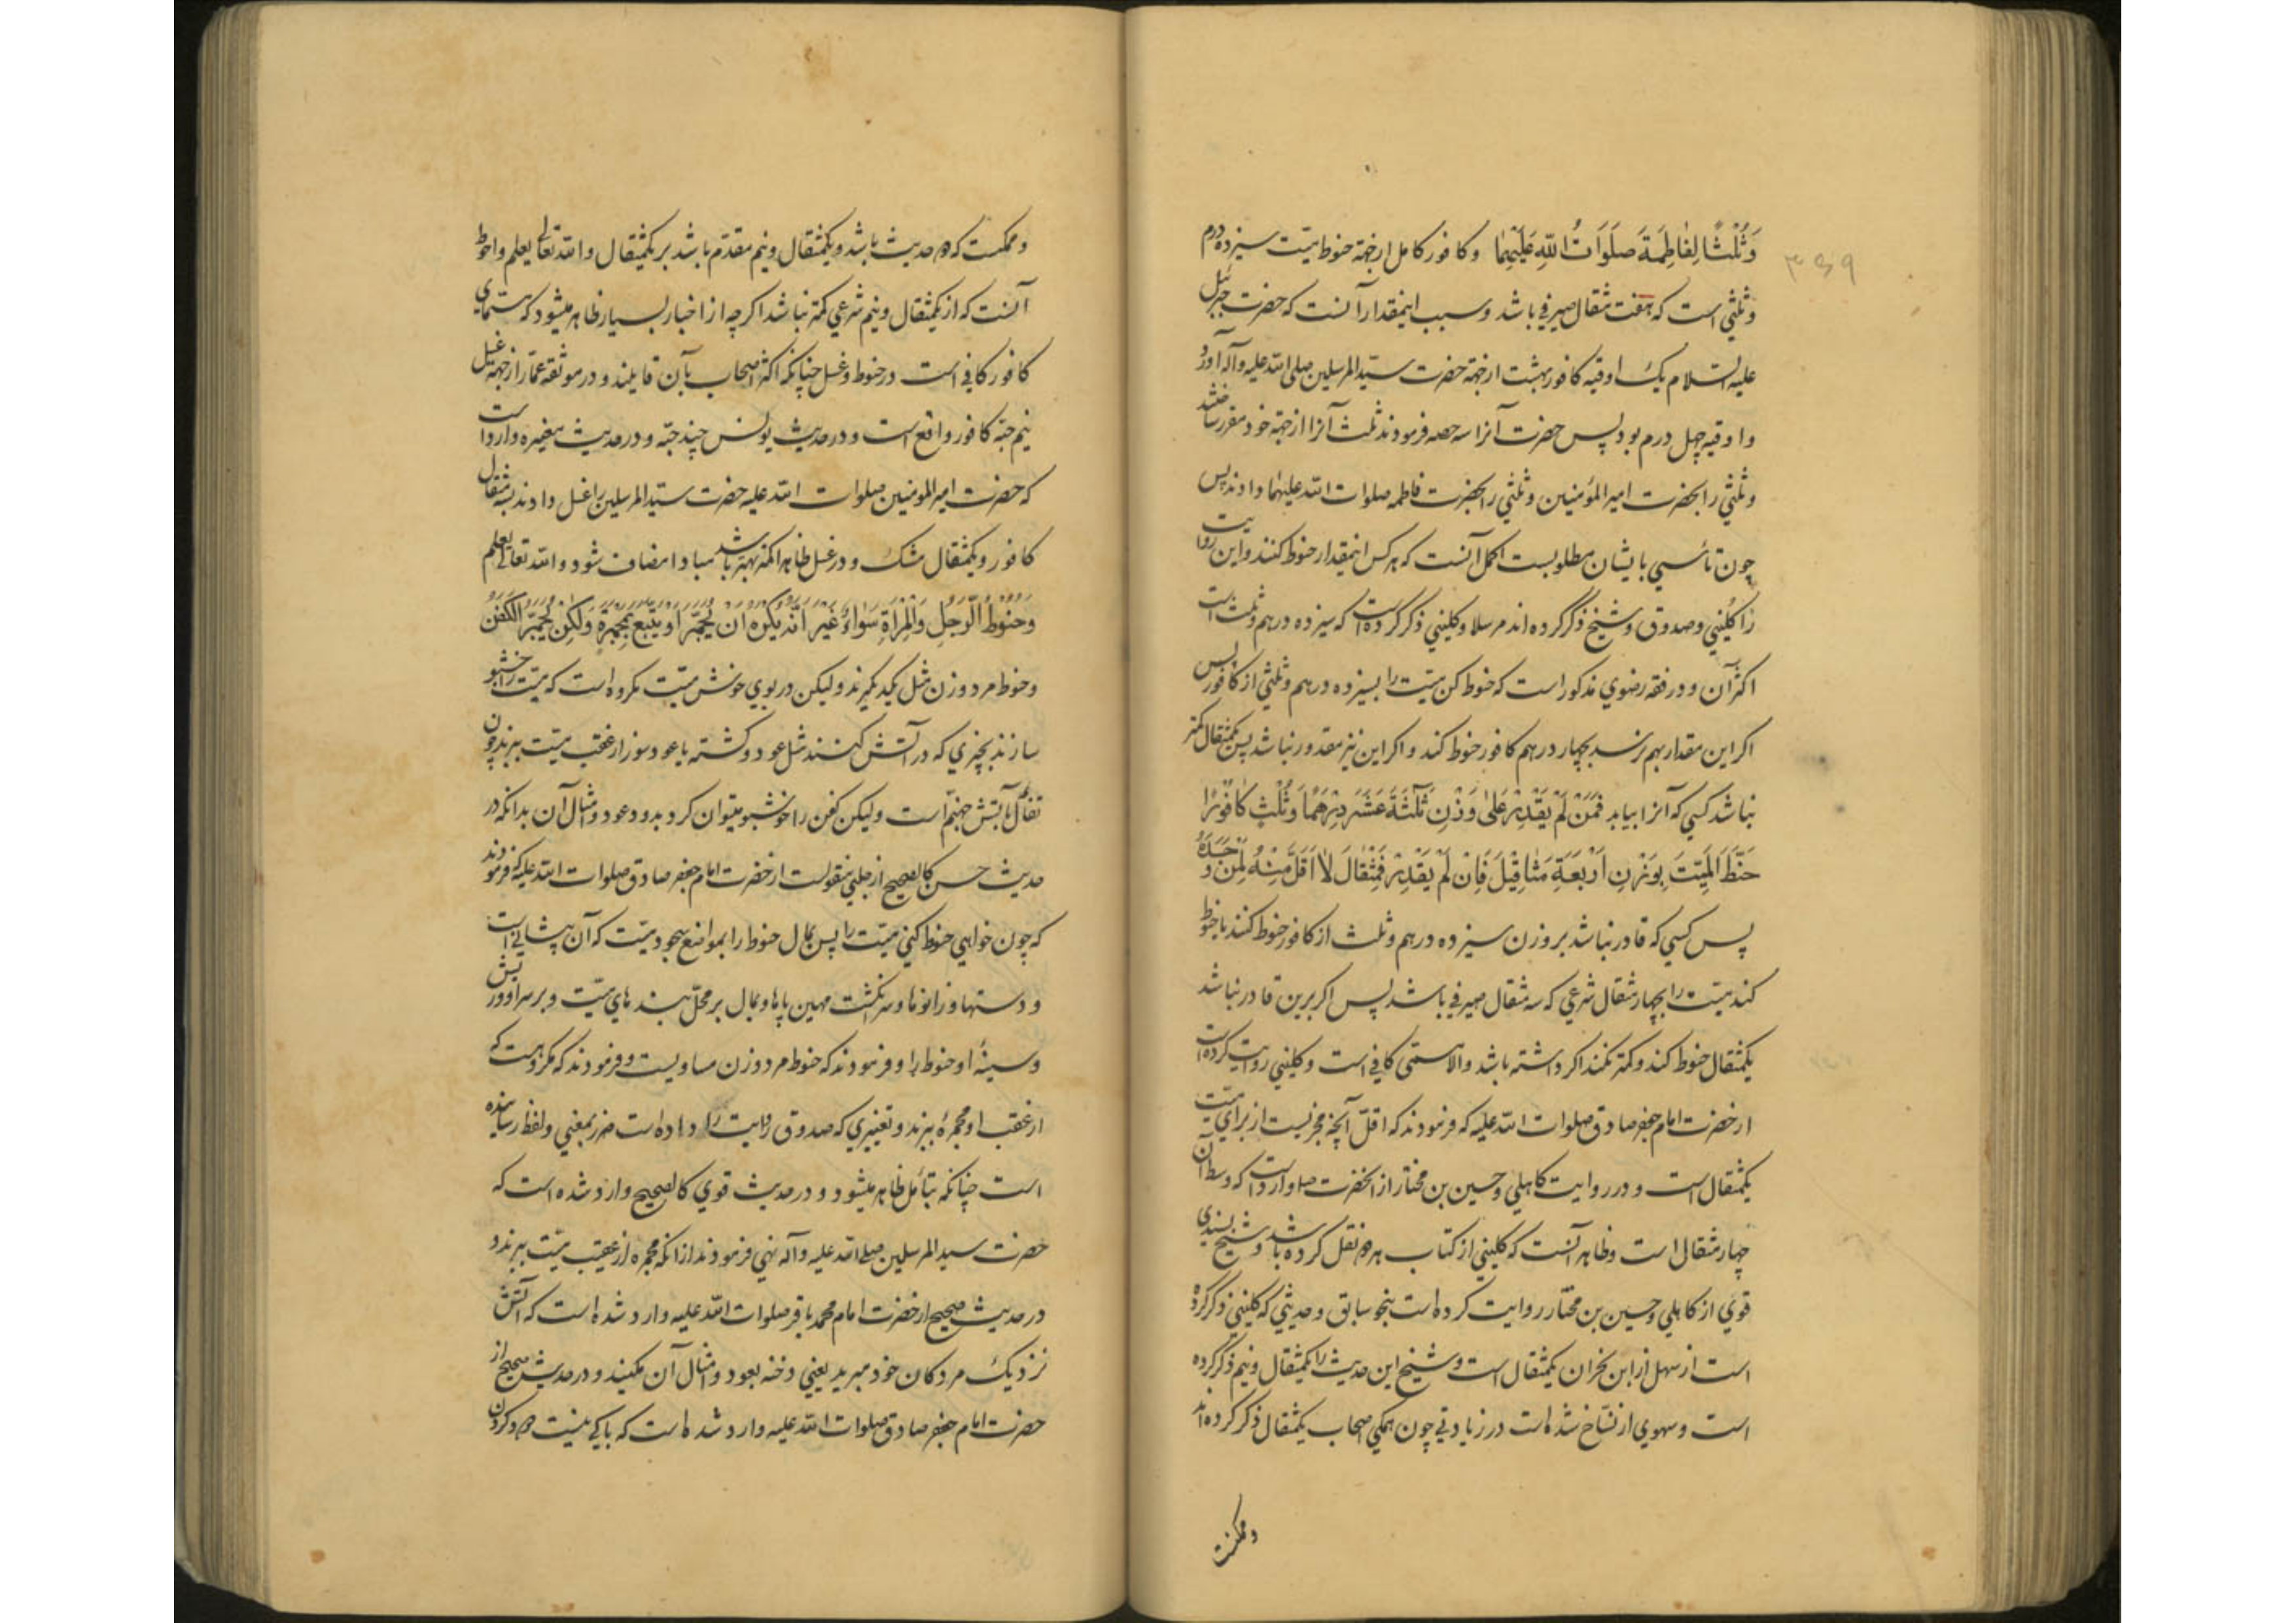 ۳۵۹
وَثُلْثًا لِفَاطِمَةَ صَلَوَاتُ اللّٰهِ عَلَيْهِمَا وکافور کامل ازجهة حنوط میّت سیزده درم
وثلثی است که هفت مثقال صیرفی باشد وسبب اینمقدار آنست که حضرت جبرئیل
علیه السلام یک اوقیه کافور بهشت ازجهة حضرت سیّد المرسلین صلی الله علیه وآله آورد
واوقیه چهل درم بود پس حضرت آنرا سه حصه فرمودند ثلث آنرا ازجهة خود مقرر ساختند
وثلثی را بحضرت امیر المؤمنین وثلثی را بحضرت فاطمه صلوات الله علیهما دادند پس
چون تأسی بایشان مطلوبست اکمل آنست که هر کس اینمقدار حنوط کنند واین روایت
را کلینی وصدوق وشیخ ذکر کرده اند مرسلا وکلینی ذکر کرده است که سیزده درهم وثلث است
اکثر آن ودر فقه رضوی مذکور است که حنوط کن میّت را بسیزده درهم وثلثی از کافور پس
اکر این مقدار بهم نرسد بچهار درهم کافور حنوط کند واکر این نیز مقدور نباشد پس یکمثقال کمتر
نباشد کسی که آنرا بیابد فَمَنْ لَمْ يَقْدِرْ عَلىٰ وَزْنِ ثَلٰثَةَ عَشَرَ دِرْهَمًا وَثُلْثٍ كَافُوْرًا
حَنَّطَ الْمَيِّتَ بِوَزْنِ اَرْبَعَةِ مَثَاقِيْلَ فَاِنْ لَمْ يَقْدِرْ فَمِثْقَالَ لَا اَقَلَّ مِنْهُ لِمَنْ وَجَدَهُ
پس کسی که قادر نباشد بر وزن سیزده درهم وثلث از کافور حنوط کنند یا حنوط
کند میّت را بچهار مثقال شرعی که سه مثقال صیرفی باشد پس اکر برین قادر نباشد
یکمثقال حنوط کند وکمتر نکند اکر داشته باشد والا مسمّی کافی است وکلینی روایت کرده است
از حضرت امام جعفر صادق صلوات الله علیه که فرمودند که اقلّ آنچه مجزیست از برای میّت
یکمثقال است ودر روایت کاهلی وحسین بن مختار از آنحضرت صلو وارد است که وسط آن
چهار مثقال است وظاهر آنست که کلینی از کتاب هر دو نقل کرده باشد وشیخ بسندی
قوی از کاهلی وحسین بن مختار روایت کرده است بنحو سابق وحدیثی که کلینی ذکر کرده
است از سهل از ابن نجران یکمثقال است وشیخ این حدیث را یکمثقال ونیم ذکر کرده
است وسهوی از نسّاخ شده است در زیادتی چون همکی اصحاب یکمثقال ذکر کرده اند
وممکنست
وممکنست که دو حدیث باشد ویکمثقال ونیم مقدّم باشد بر یکمثقال والله تعالی یعلم واحوط
آنست که از یکمثقال ونیم شرعی کمتر نباشد اکر چه از اخبار بسیار ظاهر میشود که مسمّای
کافور کافی است در حنوط وغسل چنانکه اکثر اصحاب بآن قایلند ودر موثقه عمّار ازجهة غسل
نیم حبّه کافور واقع است ودر حدیث یونس چند حبّه ودر حدیث مغیره وارد است
که حضرت امیر المومنین صلوات الله علیه حضرت سیّد المرسلین را غسل دادند بسه مثقال
کافور ویکمثقال مشک ودر غسل ظاهرا کمتر بهتر باشد مبادا مضاف شود والله تعالی یعلم
وَحَنُوْطُ الرَّجُلِ وَالْمَرْأَةِ سَوَاءٌ غَيْرَ اَنَّهُ يُكْرَهُ اَنْ يُجَمَّرَ اَوْ يُتْبَعَ بِمِجْمَرَةٍ وَلٰكِنْ يُجَمَّرُ الْكَفَنُ
وحنوط مرد وزن مثل یکدیکرند ولیکن در بوی خوش میّت مکروه است که میّت را خوشبو
سازند بچیزی که در آتش کنند مثل عود وکشته یا عود سوز از عقب میّت ببرند چون
تفأل بآتش جهنّم است ولیکن کفن را خوشبو میتوان کرد بدود عود وامثال آن بدانکه در
حدیث حسن کالصحیح از حلبی منقولست از حضرت امام جعفر صادق صلوات الله علیه که فرمودند
که چون خواهی حنوط کنی میّت را پس بمال حنوط را بمواضع سجود میّت که آن پیشانی است
ودستها وزانوها وسر انکشت مهین پاها وبمال بر محلّ بندهای میّت وبر سر او ودر ریش
وسینهٔ او حنوط را وفرمودند که حنوط مرد وزن مساویست وفرمودند که مکروهست که
از عقب او مجمرهٔ ببرند وتغییری که صدوق روایت را داده است ضرر بمعنی ولفظ رسانیده
است چنانکه بتأمل ظاهر میشود ودر حدیث قوی کالصحیح وارد شده است که
حضرت سید المرسلین صلی الله علیه وآله نهی فرمودند از انکه مجمره از عقب میّت ببرند و
در حدیث صحیح از حضرت امام محمد باقر صلوات الله علیه وارد شده است که آتش
نزدیک مردکان خود مبرید یعنی دخنه بعود وامثال آن مکنید ودر حدیث صحیح از
حضرت امام جعفر صادق صلوات الله علیه وارد شده است که باکی نیست دود کردن